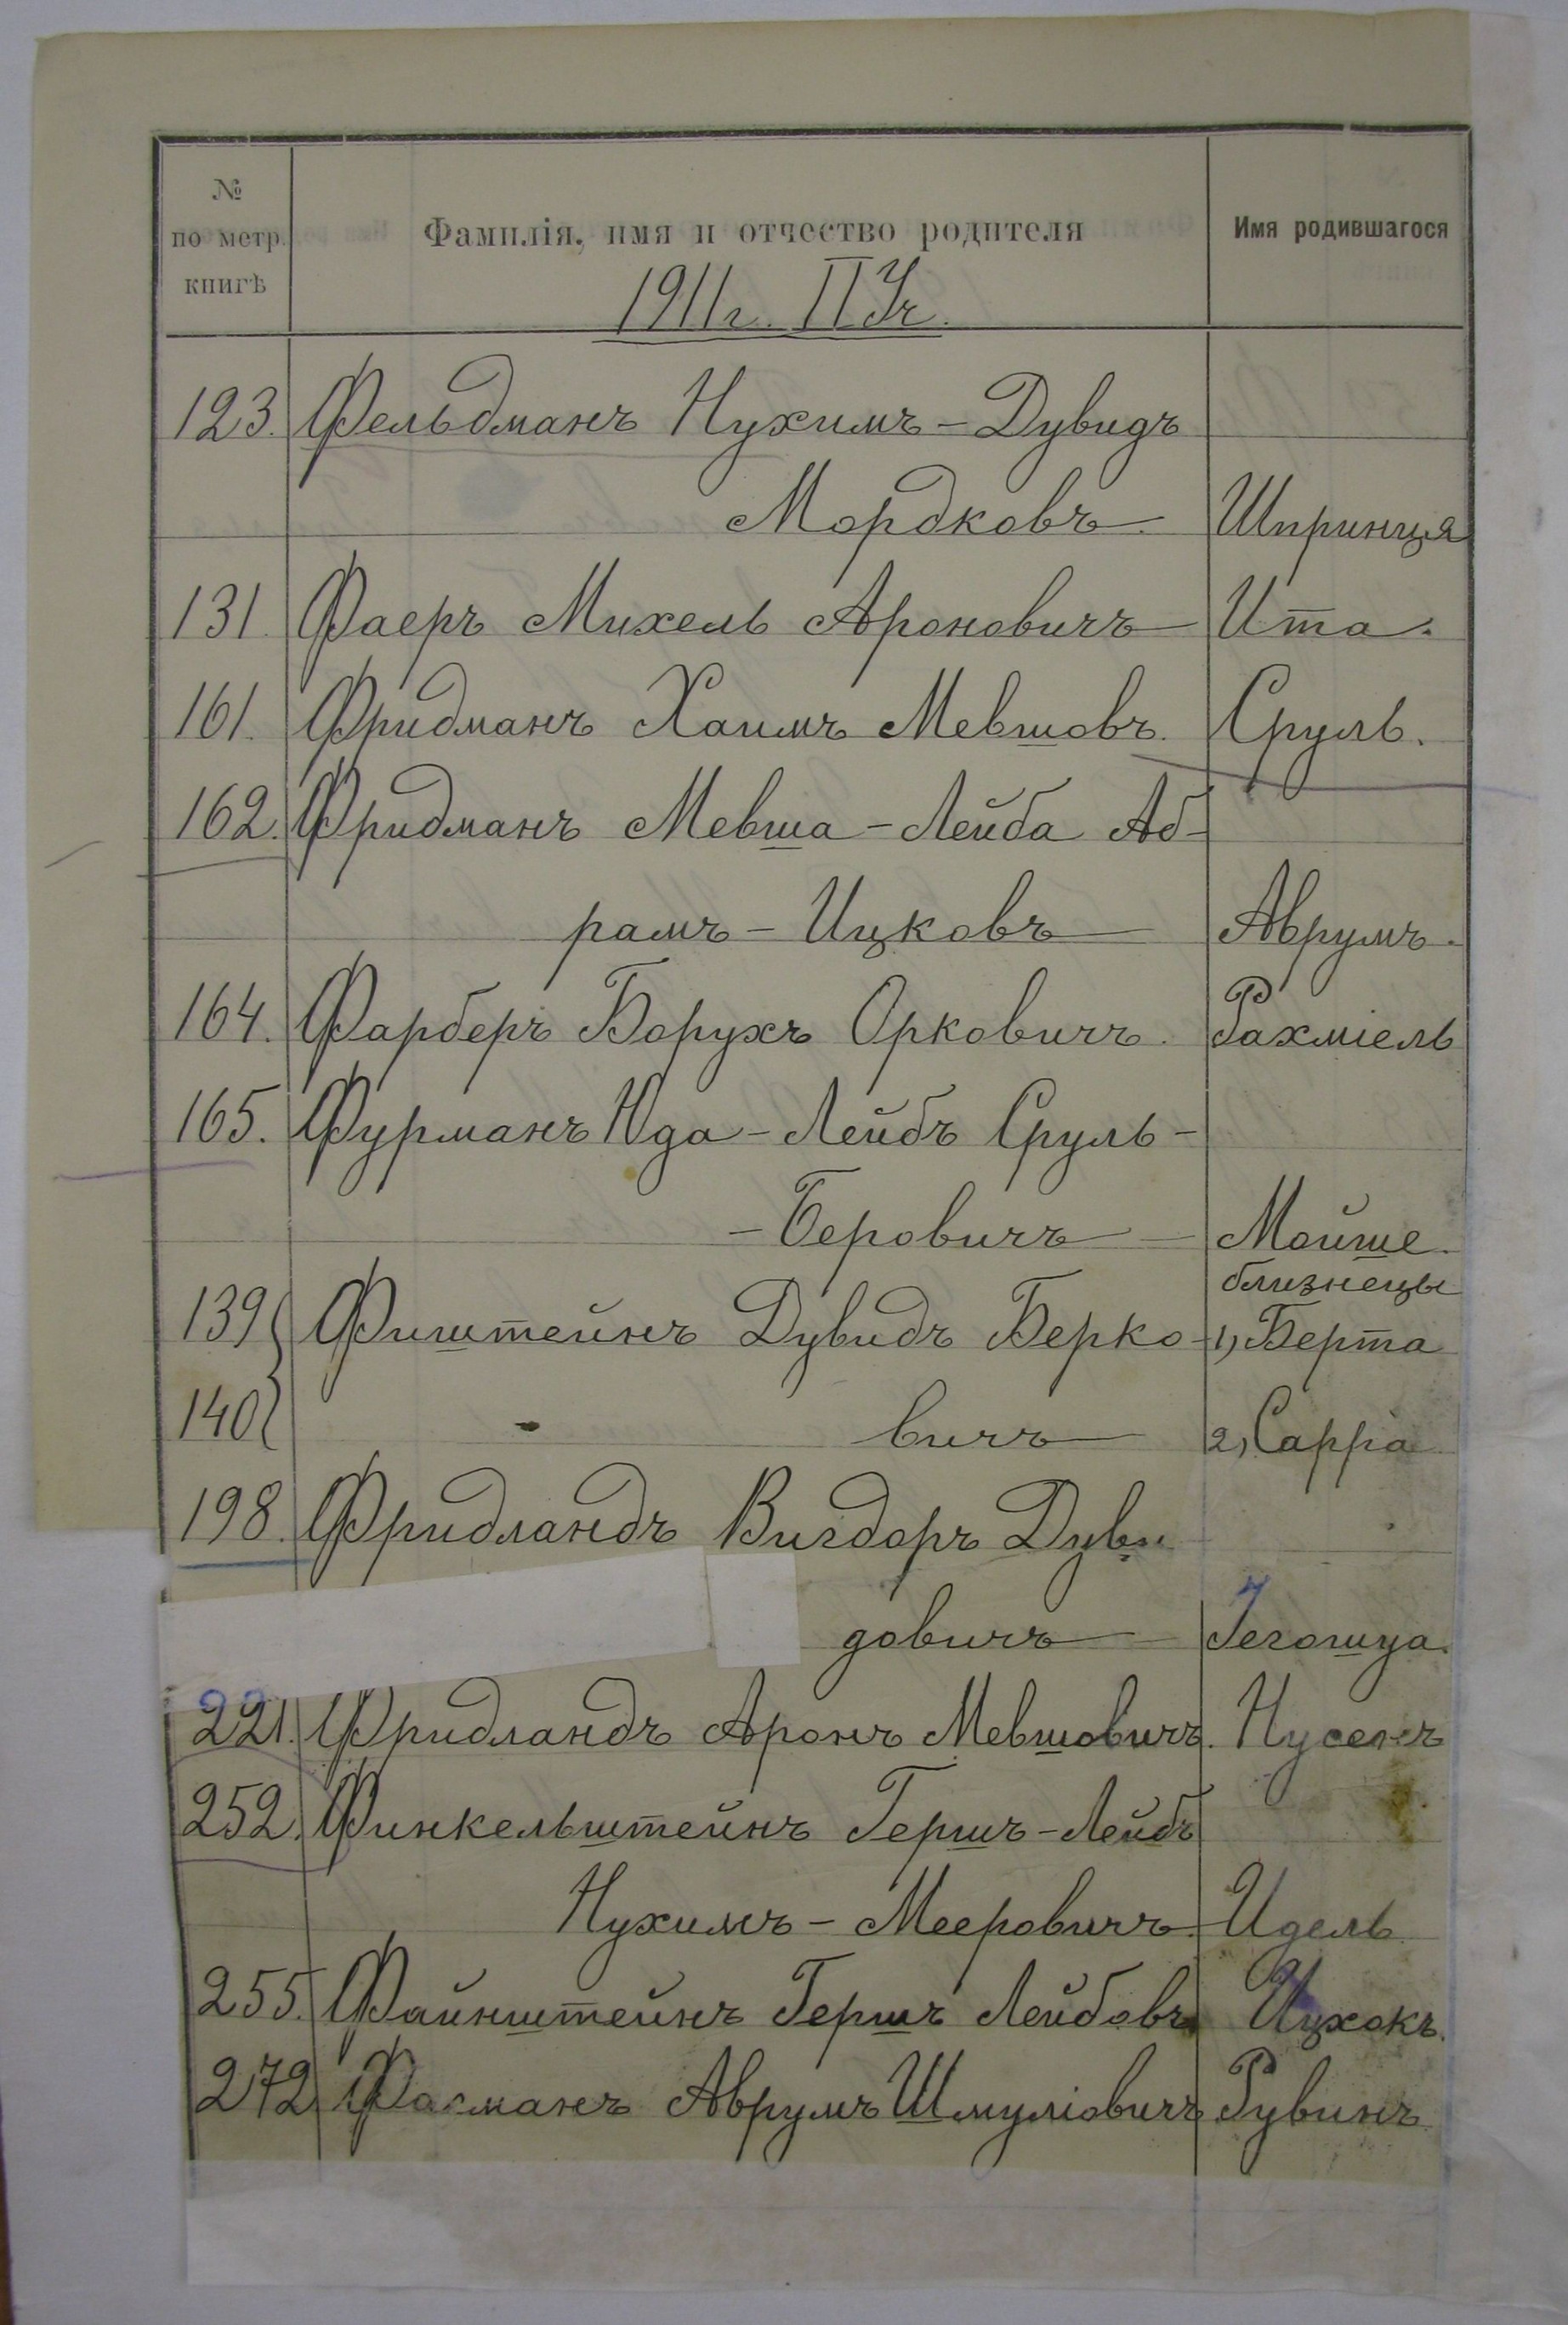 №
по метр.
книгѣ
Фамилія, имя и отчество родителя
Имя родившагося
1911г. II Уч.
123. Фельдманъ Нухимъ-Дувидъ
Мордковъ. Шпринця
131. Фаеръ Михель Ароновичъ Ита.
161. Фридманъ Хаимъ Мевшовъ. Сруль.
162. Фридманъ Мевша-Лейба Аб-
рамъ-Ицковъ Аврумъ.
164. Фарберъ Борухъ Орковичъ. Рахміель
165. Фурманъ Юда-Лейбъ Сруль-
-Беровичъ Мойше.
близнецы
139 Фиштейнъ Дувидъ Берко- 1, Берта
140 вичъ 2, Сарра
198. Фридландъ Вигдоръ Дуви
довичъ Іегошуа.
221. Фридландъ Аронъ Мевшовичъ. Нусенъ
252. Финкельштейнъ Гершъ-Лейбъ
Нухимъ-Мееровичъ. Идель
255. Файнштейнъ Гершъ Лейбовъ Ицхокъ.
272 Фасманъ Аврумъ Шмуліовичъ Рувинъ